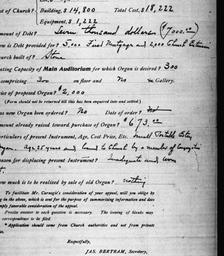 of Church?, Building, $14,800 Total Cost, $18,022
Equipment, $1,222
mount of Debt? Seven thousand dollars ($7000.00)
is Debt provided for? 5,000 First Mortgage and 2,000 Church Extension
hurch built of? Stone
ting Capacity of Main Auditorium for which Organ is desired? 300
comprising 300 on floor and No in Gallery.
ice of proposed Organ? $2,000
(Form should not be returned till this has been enquired into and settled.)
new Organ been ordered? No Date of order?
mount already raised towards purchase of Organ?
rticulars of present Instrument, Age, Cost Price, Etc. Small
25 years
eason for displacing present Instrument? Inadequate and worn
out
ow much is to be realized by sale of old Organ? nothing
To facilitate Mr. Carnegie's consideration of your appeal, will you oblige
ing in the above, which is sent for the purpose of summarizing information and does
mply favorable consideration of the appeal.
Precise answer to each question is necessary. The issuing of blanks may
correspondence to be filed.
Application should come from Church authorities and not from private
Respectfully,
JAS. BERTRAM, Secretary,